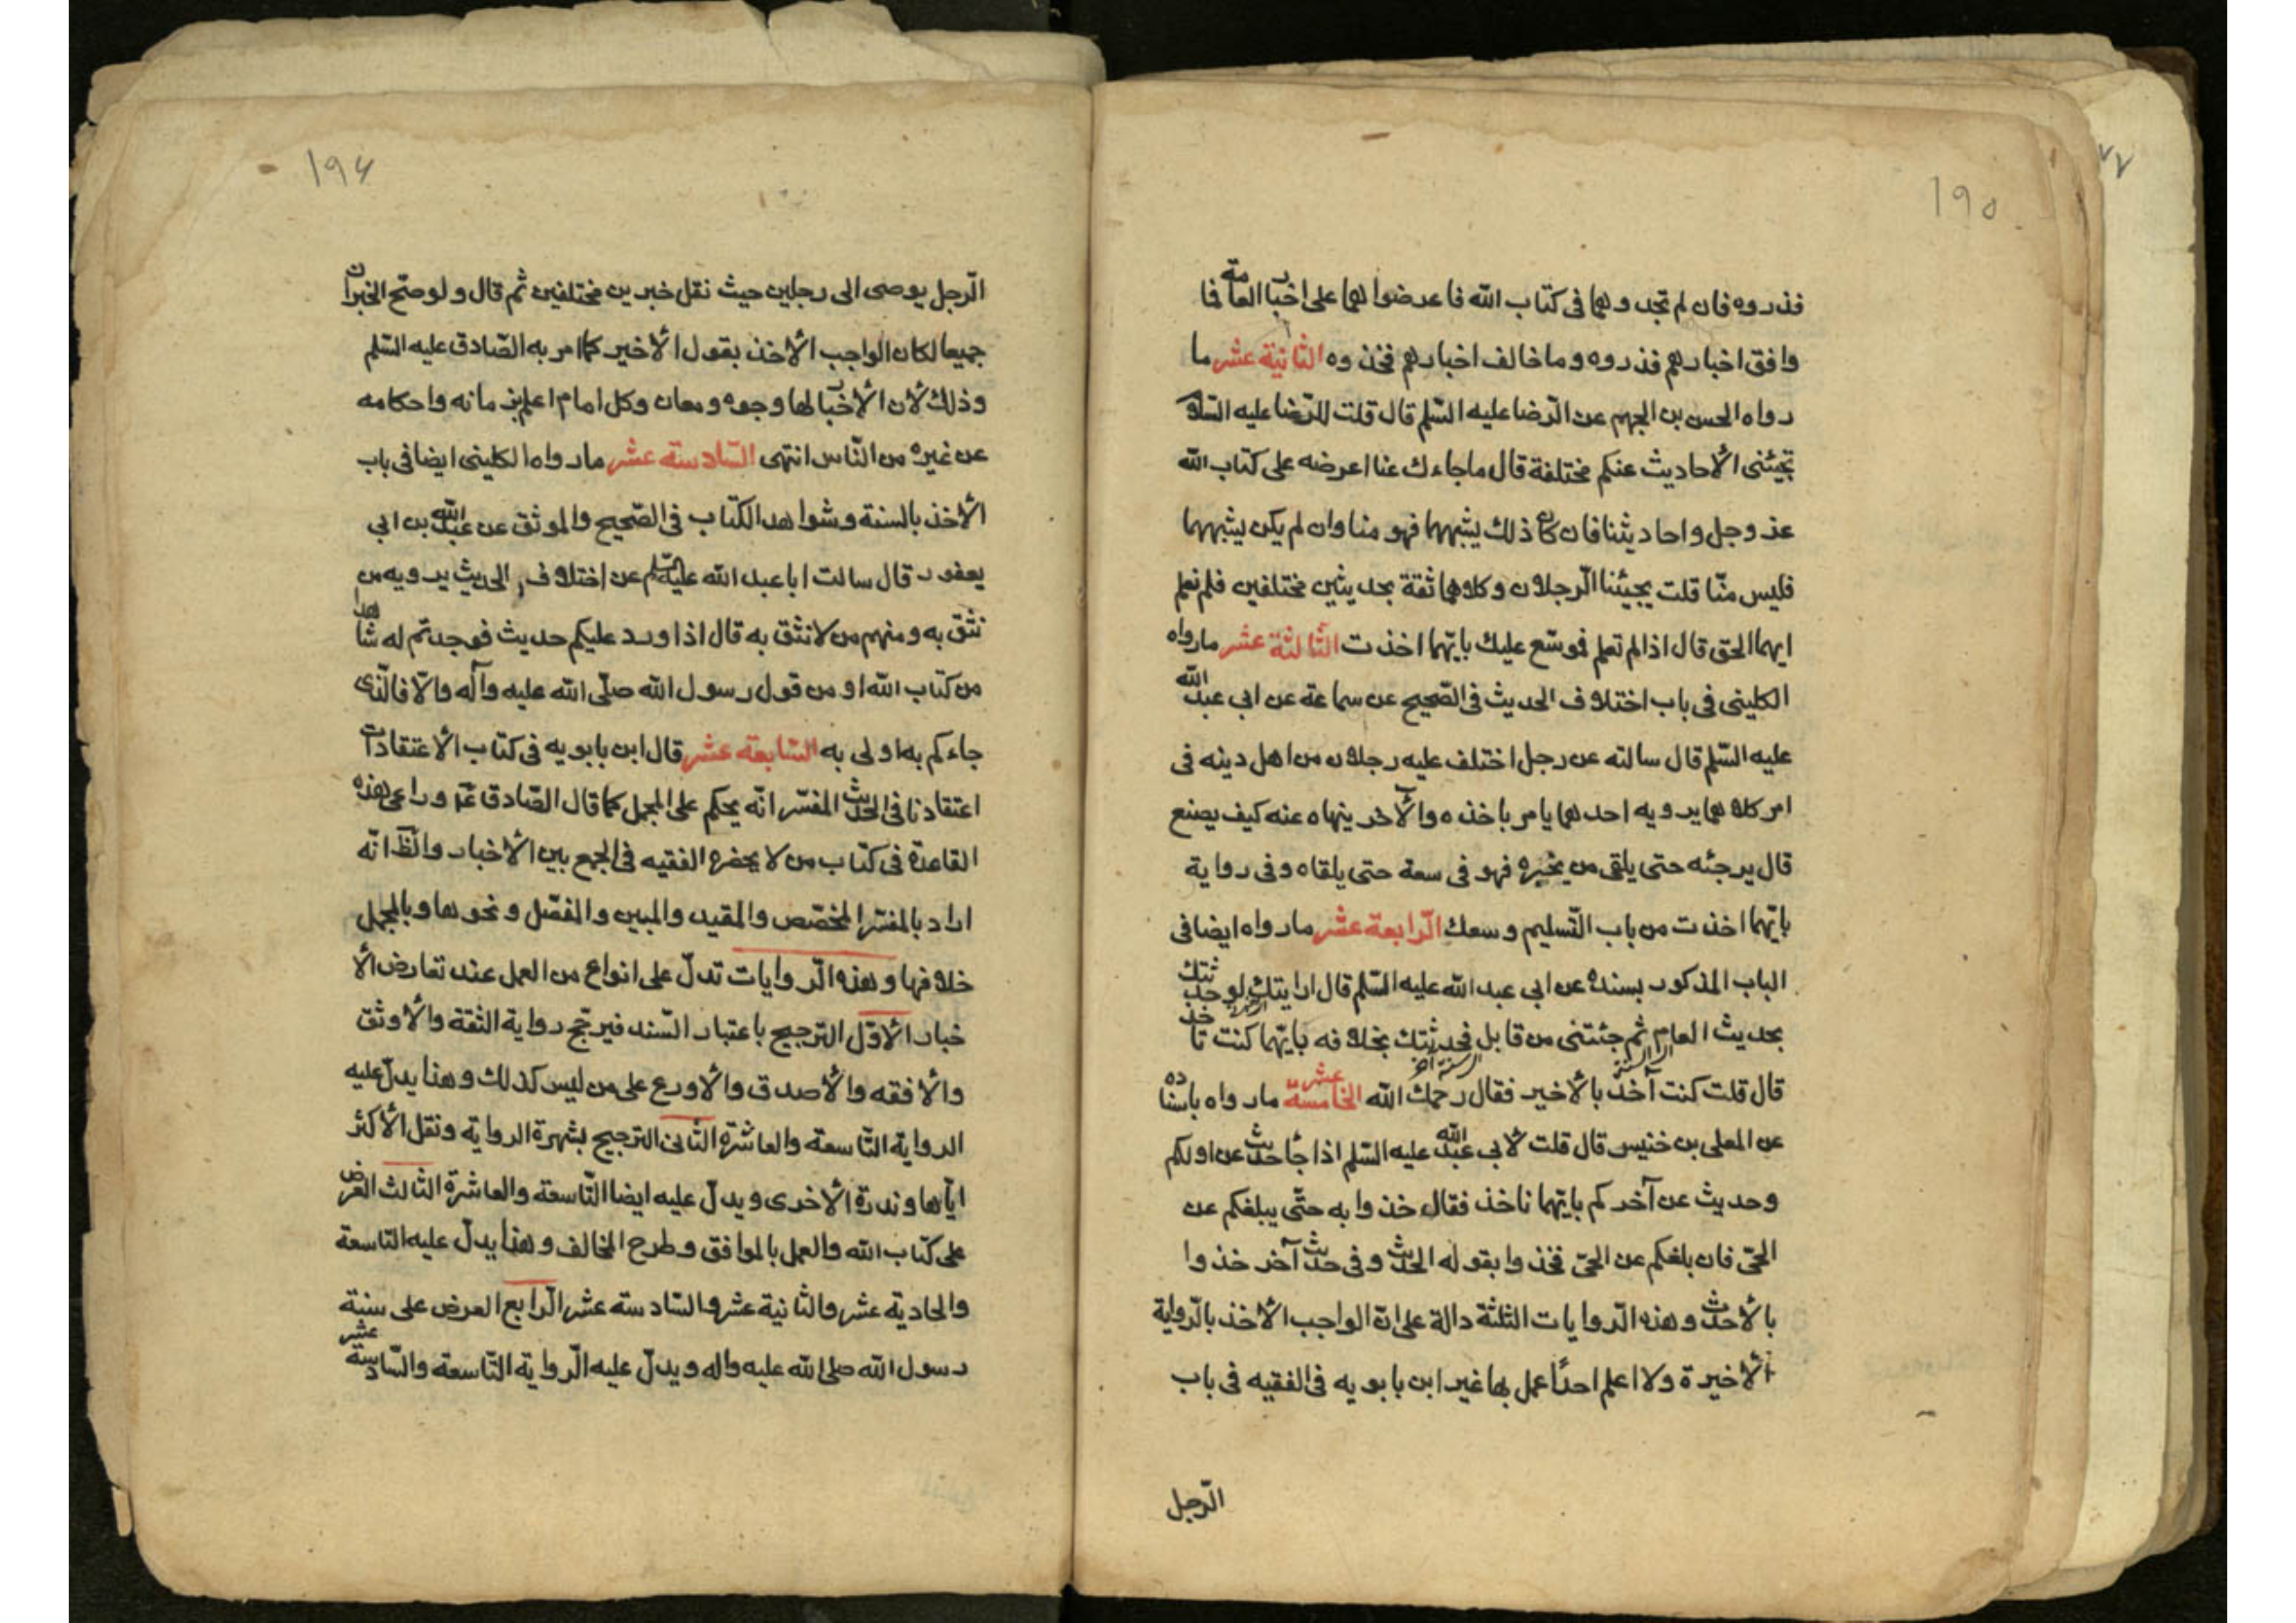 ١٩٥
فذروه فان لم تجدوهما فى كتاب الله فاعرضوا لهما على اخبار العامة فما
وافق اخبارهم فذروه وما خالف اخبارهم فخذوه الثانية عشر ما
رواه الحسن بن الجهم عن الرّضا عليه السّلم قال قلت للرّضا عليه السّلام
تجيئنى الأحاديث عنكم مختلفة قال ما جاءك عنا اعرضه على كتاب الله
عز وجل واحاديثنا فان كان ذلك يشبهها فهو منا وان لم يكن يشبهها
فليس منّا قلت يجيئنا الرّجلان وكلاهما ثقة بحديثين مختلفين فلم نعلم
ايهما الحق قال اذا لم تعلم فموسّع عليك بايّهما اخذت الثّالثة عشر ما رواه
الكلينى فى باب اختلاف الحديث فى الصّحيح عن سماعة عن ابى عبد الله
عليه السّلم قال سالته عن رجل اختلف عليه رجلان من اهل دينه فى
امر كلاهما يرويه احدهما يامر باخذه والآخر ينهاه عنه كيف يصنع
قال يرجئه حتى يلقى من يخبره فهو فى سعة حتى يلقاه وفى رواية
بايّهما اخذت من باب التّسليم وسعك الرّابعة عشر ما رواه ايضا فى
الباب المذكور بسنده عن ابى عبد الله عليه السّلم قال ارايتك لو حدثتك
بحديث العام ثم جئتنى من قابل فحدثتك بخلافه بايّهما كنت تاخذ
قال قلت كنت آخذ بالأخير فقال رحمك الله الخامسة عشر ما رواه باسناده
عن المعلى بن خنيس قال قلت لأبى عبد الله عليه السّلم اذا جأ حديث عن اولكم
وحديث عن آخركم بايّهما ناخذ فقال خذوا به حتّى يبلغكم عن
الحىّ فان بلغكم عن الحىّ فخذوا بقوله الحديث وفى حديث آخر خذوا
بالأحدث وهذه الرّوايات الثلثة دالة على انّ الواجب الأخذ بالرّواية
الأخيرة ولا اعلم احدًا عمل بها غير ابن بابويه فى الفقيه فى باب
الرّجل
١٩٦
الرّجل يوصى الى رجلين حيث نقل خبرين مختلفين ثم قال ولو صحّ الخبران
جميعا لكان الواجب الأخذ بقول الأخير كما امر به الصّادق عليه السّلم
وذلك لأن الأخبار لها وجوه ومعان وكل امام اعلم بزمانه واحكامه
عن غيره من النّاس انتهى السّادسة عشر ما رواه الكلينى ايضا فى باب
الأخذ بالسنة وشواهد الكتاب فى الصّحيح والموثق عن عبد الله بن ابى
يعفور قال سالت ابا عبد الله عليه السّلم عن اختلاف الحديث يرويه من
نثق به ومنهم من لا نثق به قال اذا ورد عليكم حديث فوجدتم له شاهدا
من كتاب الله او من قول رسول الله صلّى الله عليه وآله والّا فالّذى
جاءكم به اولى به السّابعة عشر قال ابن بابويه فى كتاب الأعتقادات
اعتقادنا فى الحديث المفسّر انّه يحكم على المجمل كما قال الصّادق ع وراعى هذه
القاعدة فى كتاب من لا يحضره الفقيه فى الجمع بين الأخبار والظّ انّه
اراد بالمفسّر المخصّص والمقيد والمبين والمفصّل ونحوها وبالمجمل
خلافها وهذه الرّوايات تدلّ على انواع من العمل عند تعارض الأ
خبار الأوّل الترجيح باعتبار السّند فيرجّح رواية الثقة والأوثق
والأفقه والأصدق والأورع على من ليس كذلك وهذا يدلّ عليه
الرواية التّاسعة والعاشرة الثّانى الترجيح بشهرة الرواية ونقل الأكثر
ايّاها وندرة الأخرى ويدلّ عليه ايضا التّاسعة والعاشرة الثالث العرض
على كتاب الله والعمل بالموافق وطرح المخالف وهذا يدلّ عليه التاسعة
والحادية عشر والثانية عشر والسّادسة عشر الرّابع العرض على سنة
رسول الله صلى الله عليه واله ويدلّ عليه الرّواية التّاسعة والسّادسة عشر